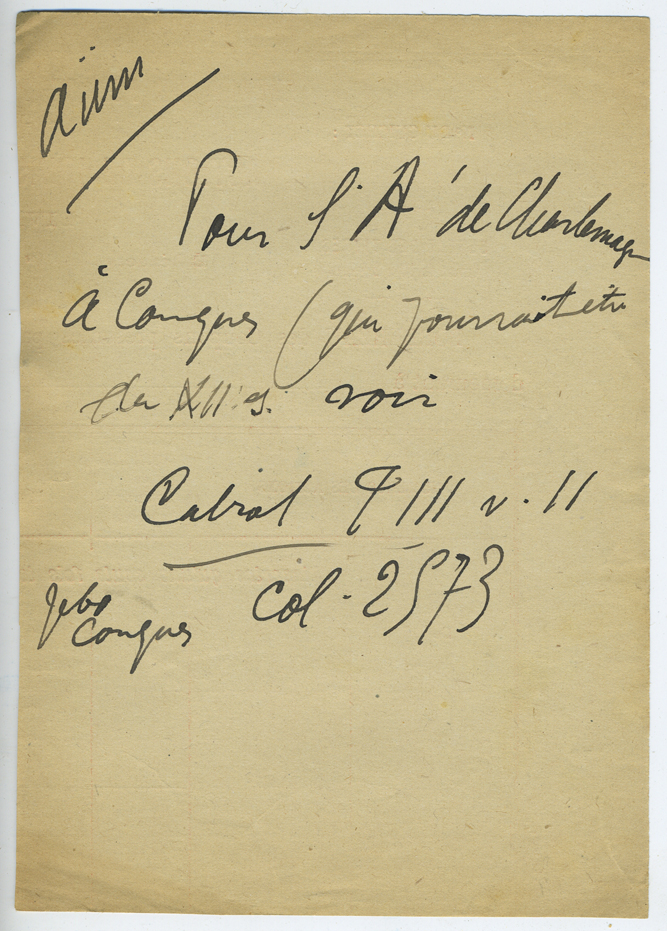 Pour l'A de Charlemagne
à Conques (qui pourrait être
du XII s. voir
Cabrol T III v. II
col. 2573
Conques